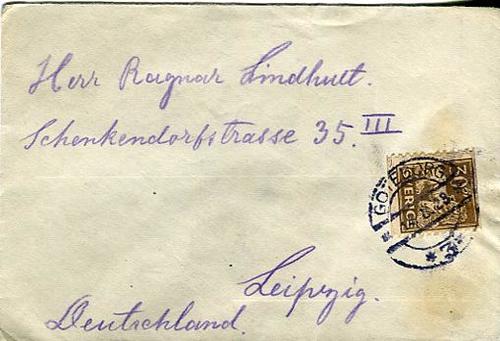 Herr Ragnar Lindhult.
Schenkendorfstrasse 35. III
GÖTEBORG
SVERIGE
Leipzig.
Deutschland.